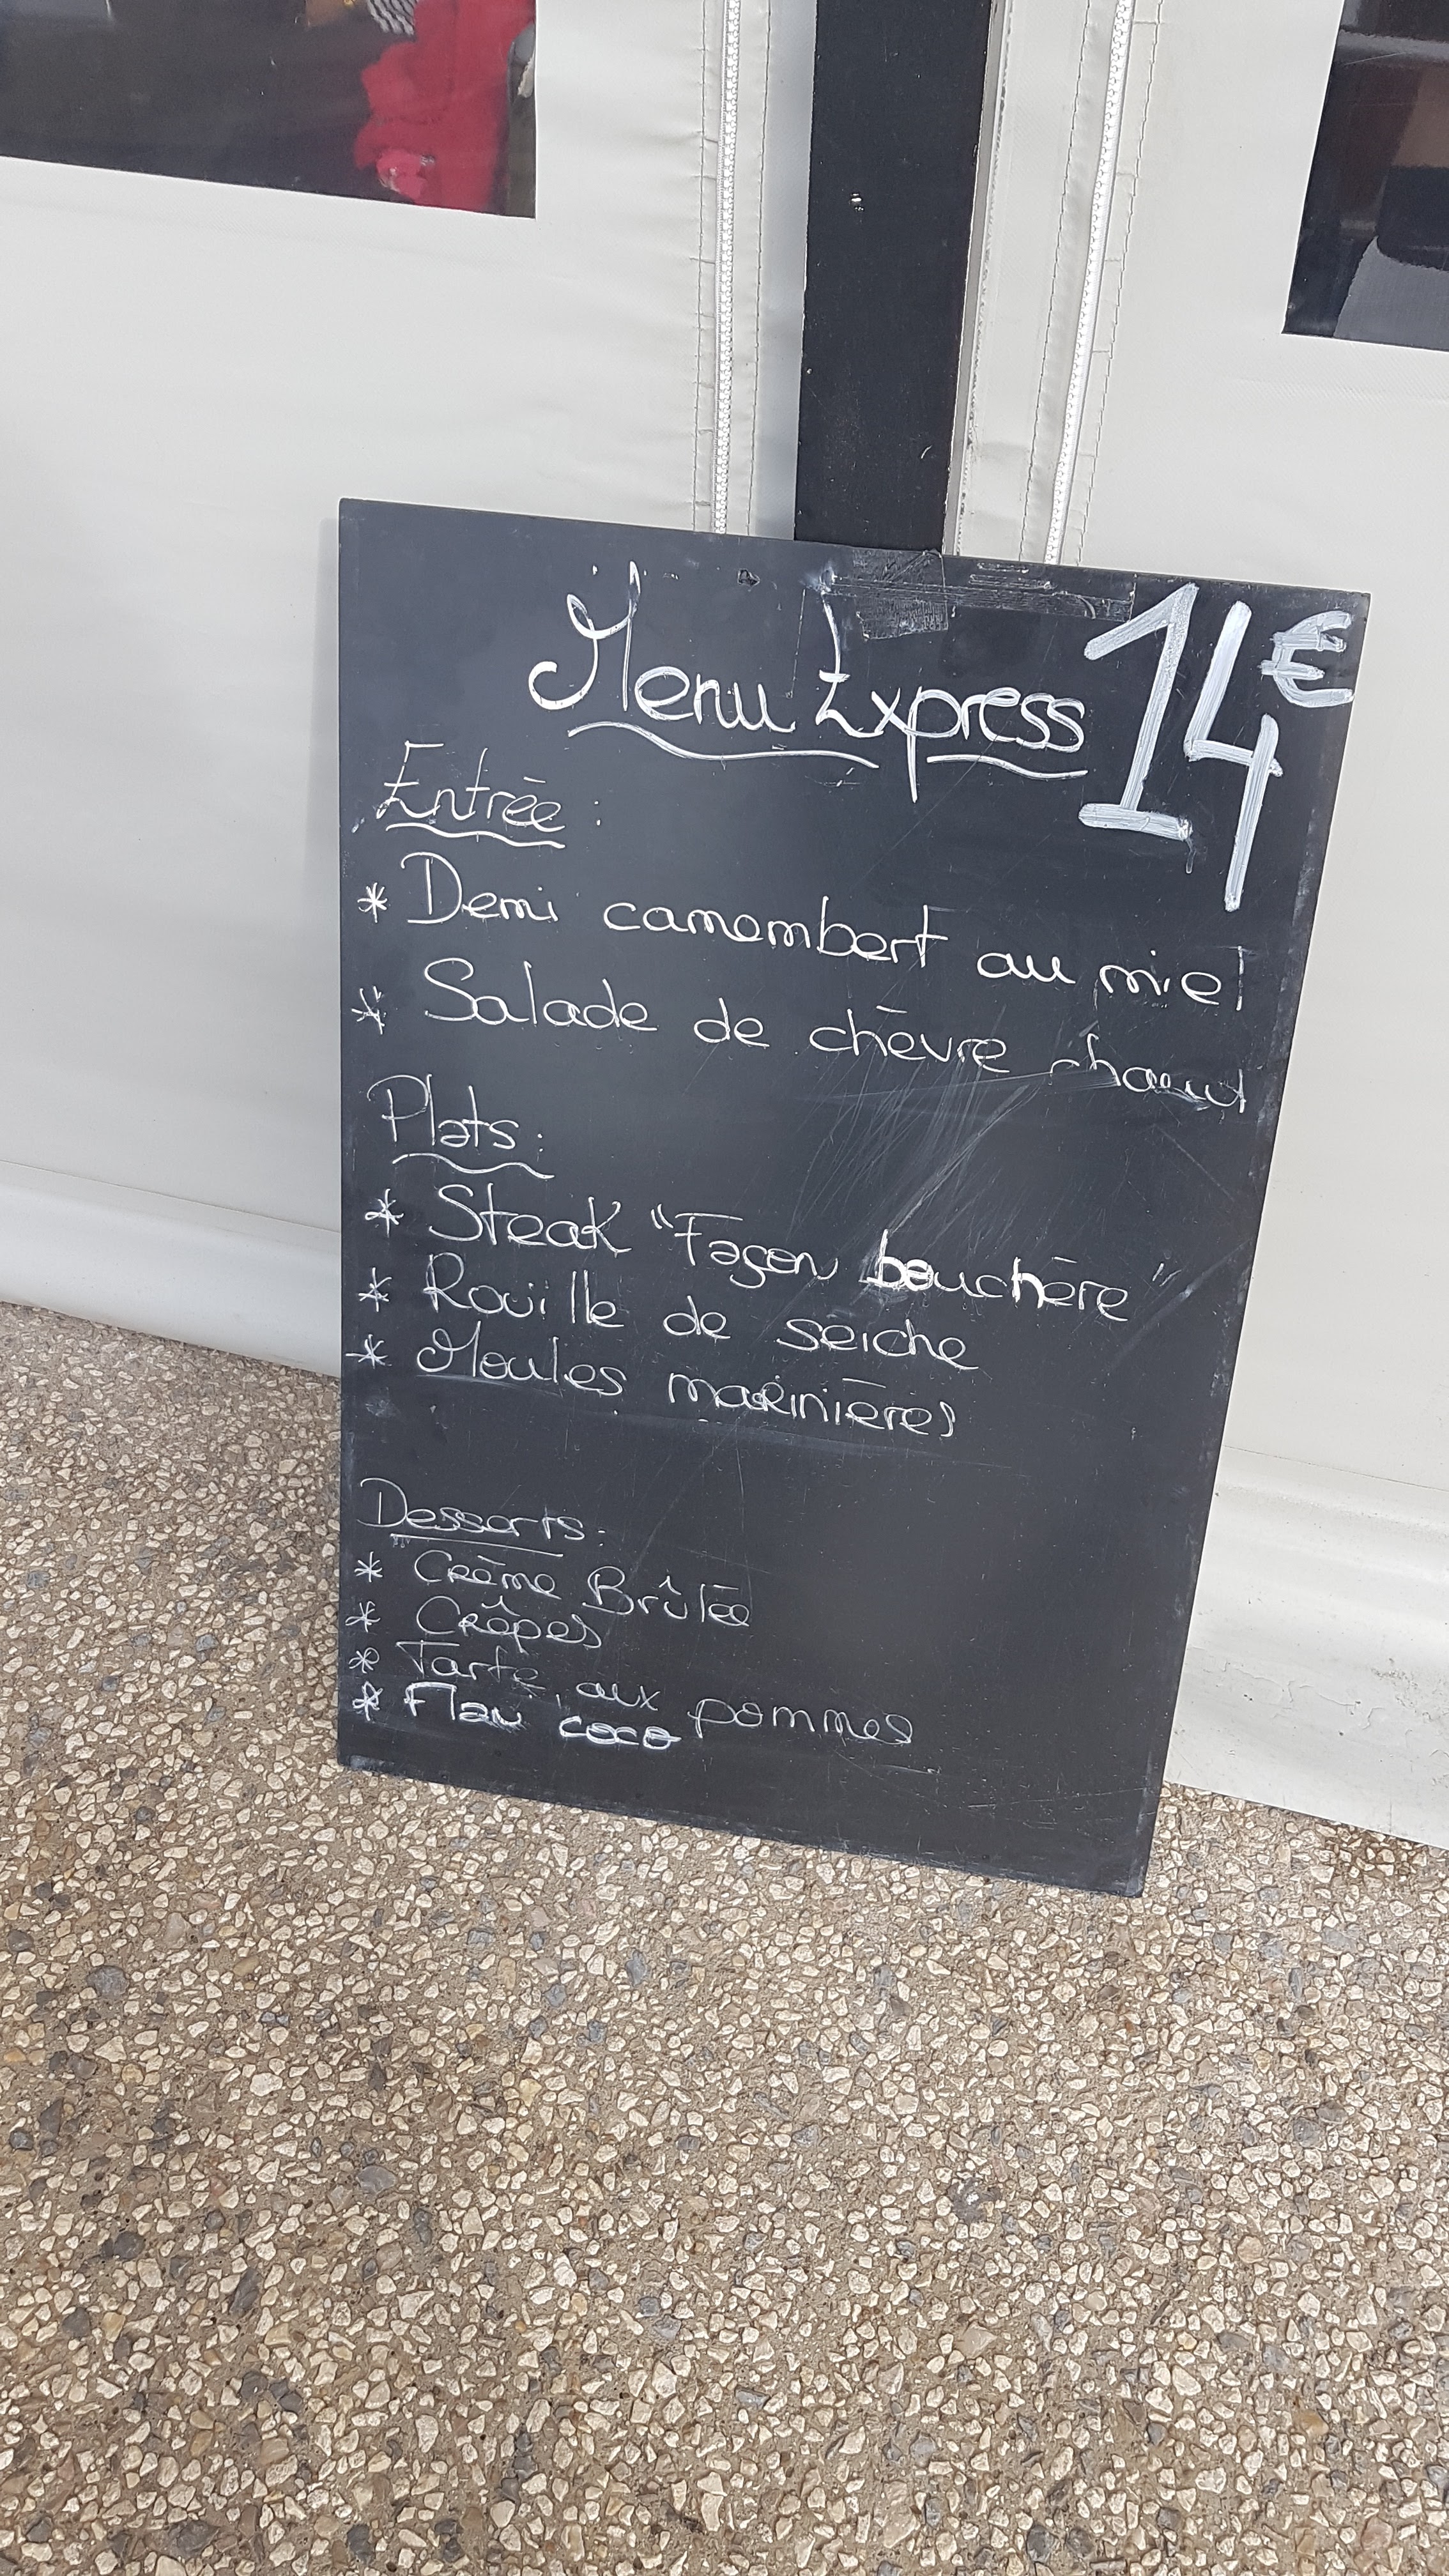 Menu Express 14€
Entrée :
* Demi camembert au miel
* Salade de chèvre chaud
Plats :
* Steak "Façon bouchère"
* Rouille de seiche
* Moules marinières
Desserts :
* Crème Brûlée
* Crêpes
* Tarte aux pommes
* Flan coco